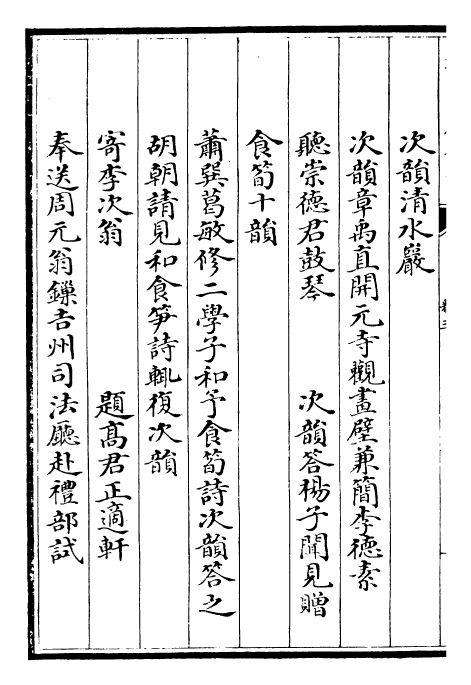 次韻清水巖
次韻章禹直開元寺觀畫壁兼簡李德素
聽崇德君鼓琴　次韻答楊子聞見贈
食筍十韻
蕭巽葛敏修二學子和予食筍詩次韻答之
胡朝請見和食笋詩輒復次韻
寄李次翁　題高君正適軒
奉送周元翁鏁吉州司法廳赴禮部試